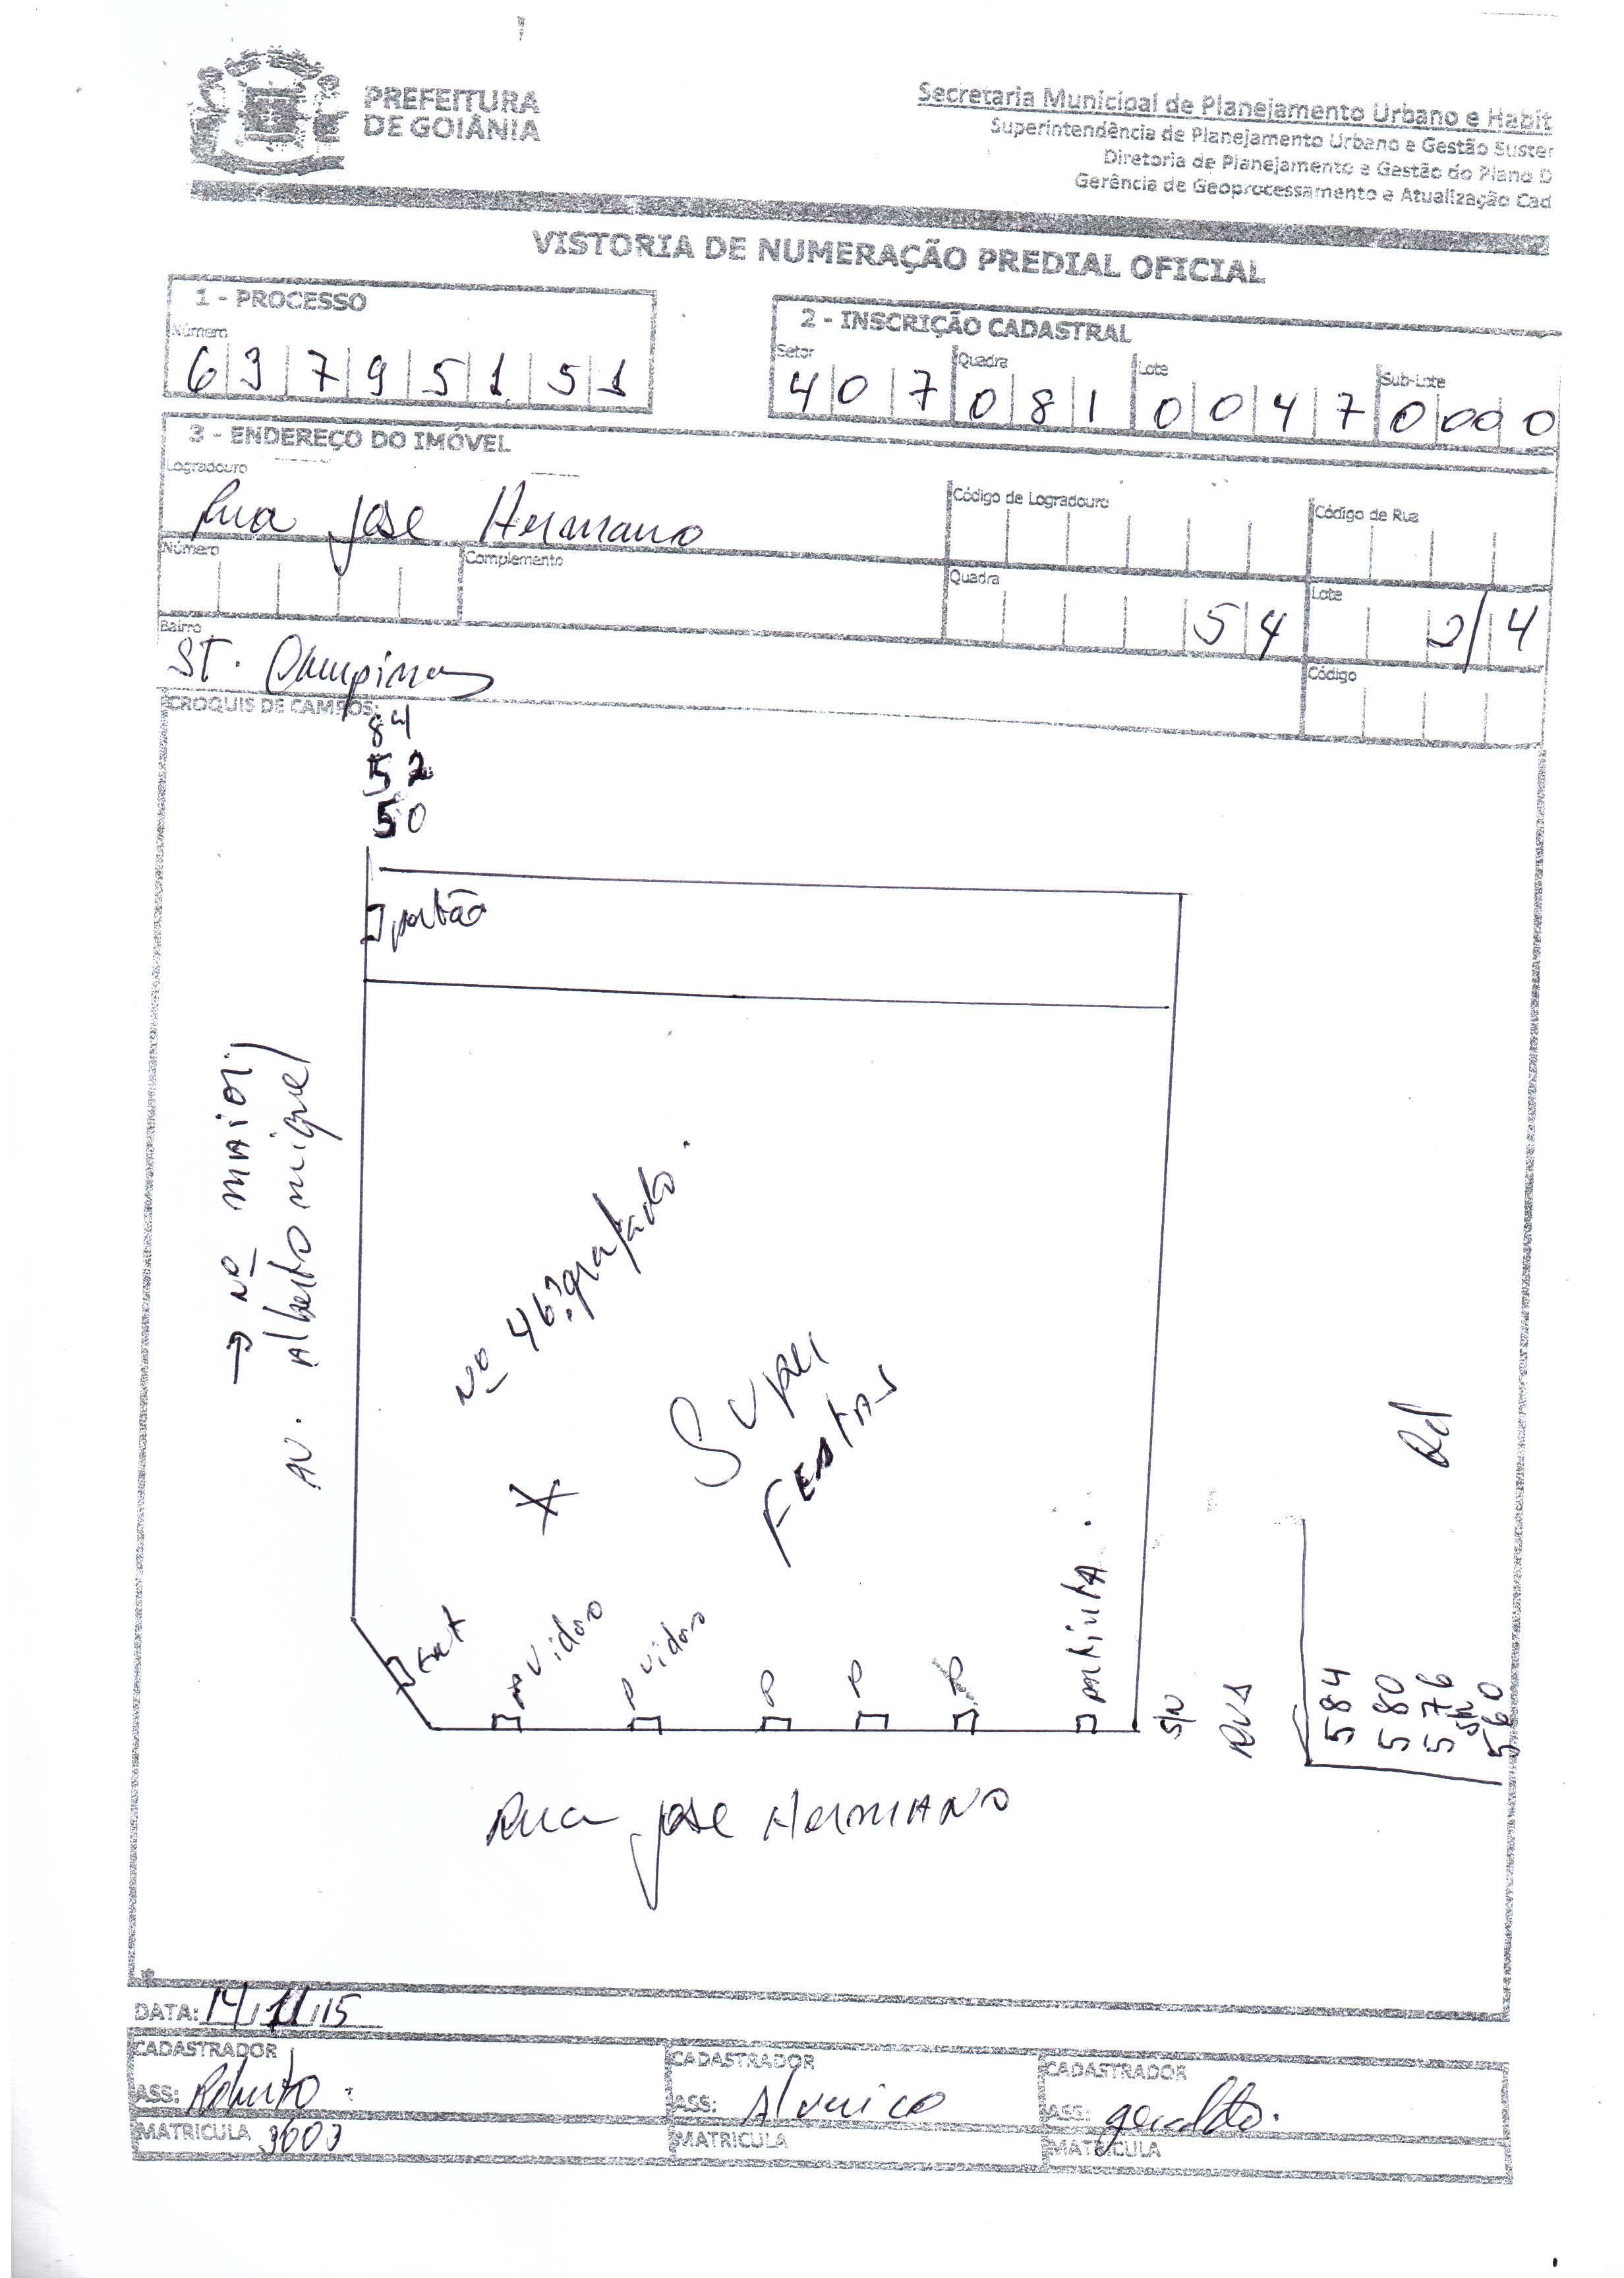 PREFEITURA
DE GOIÂNIA
Secretaria Municipal de Planejamento Urbano e Habit
Superintendência de Planejamento Urbano e Gestão Suster
Diretoria de Planejamento e Gestão do Plano D
Gerência de Geoprocessamento e Atualização Cad
VISTORIA DE NUMERAÇÃO PREDIAL OFICIAL
1 - PROCESSO
Número
6 3 7 9 5 1 5 1
2 - INSCRIÇÃO CADASTRAL
Setor Quadra Lote Sub-Lote
4 0 7 0 8 1 0 0 4 7 0 0 0 0
3 - ENDEREÇO DO IMÓVEL
Logradouro
Rua Jose Hermano
Código de Logradouro
Código de Rua
Número
Complemento
Quadra
54
Lote
2/4
Bairro
ST. Campinas
Código
CROQUIS DE CAMPOS:
84
52
50
portão
→ Nº MAIOR
AV. Alberto miguel
Nº 463 grafado.
Super
FESTAS
X
Ent
P vidro
P vidro
P
P
P
S/N
RUA
584
580
576
S/N
560
Rua Jose HermANO
DATA: 14/11/15
CADASTRADOR
ASS: Roberto
MATRICULA 3003
CADASTRADOR
ASS: Alverico
MATRICULA
CADASTRADOR
ASS: geraldo.
MATRICULA